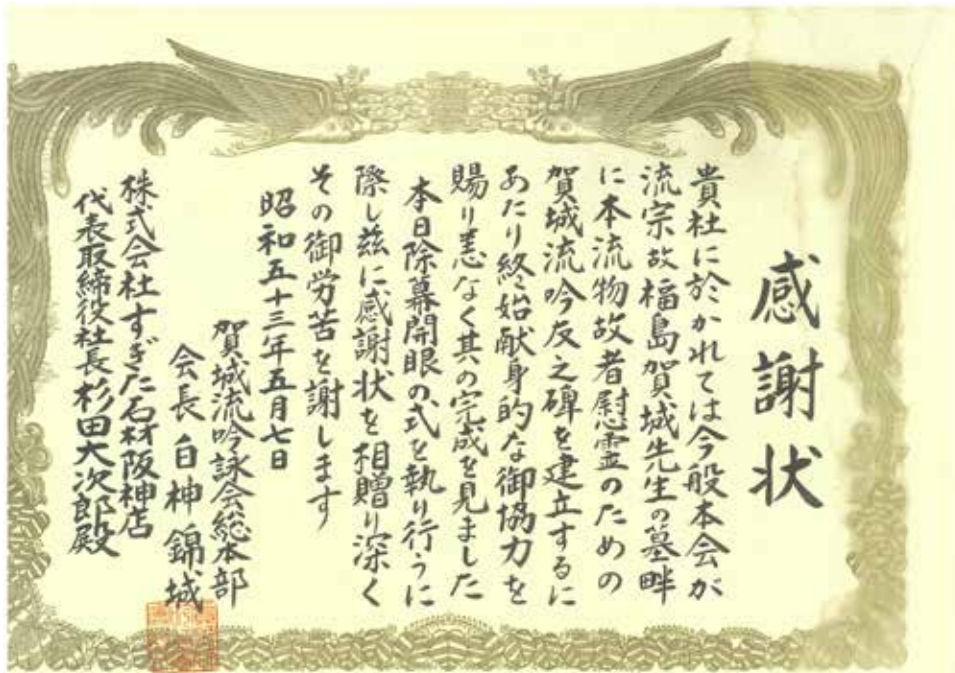 感謝状
貴社に於かれては今般本会が
流宗故福島賀城先生の墓畔
に本流物故者慰霊のための
賀城流吟友之碑を建立するに
あたり終始献身的な御協力を
賜り恙なく其の完成を見ました
本日除幕開眼の式を執り行うに
際し茲に感謝状を相贈り深く
その御労苦を謝します
昭和五十三年五月七日
賀城流吟詠会総本部
会長白神錦城
株式会社すぎた石材阪神店
代表取締役社長杉田大次郎殿